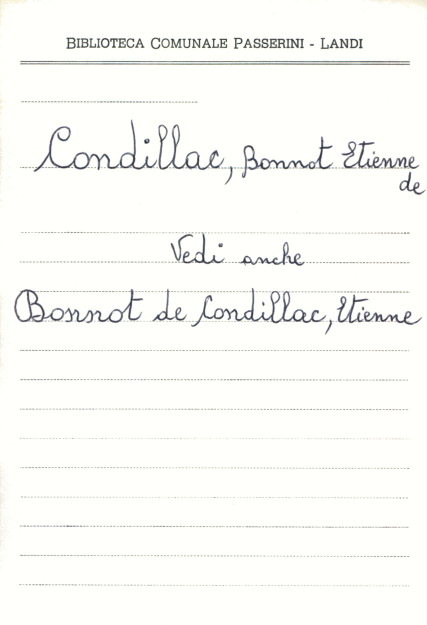 BIBLIOTECA COMUNALE PASSERINI - LANDI
Condillac, Bonnot Etienne
de
Vedi anche
Bonnot de Condillac, Etienne